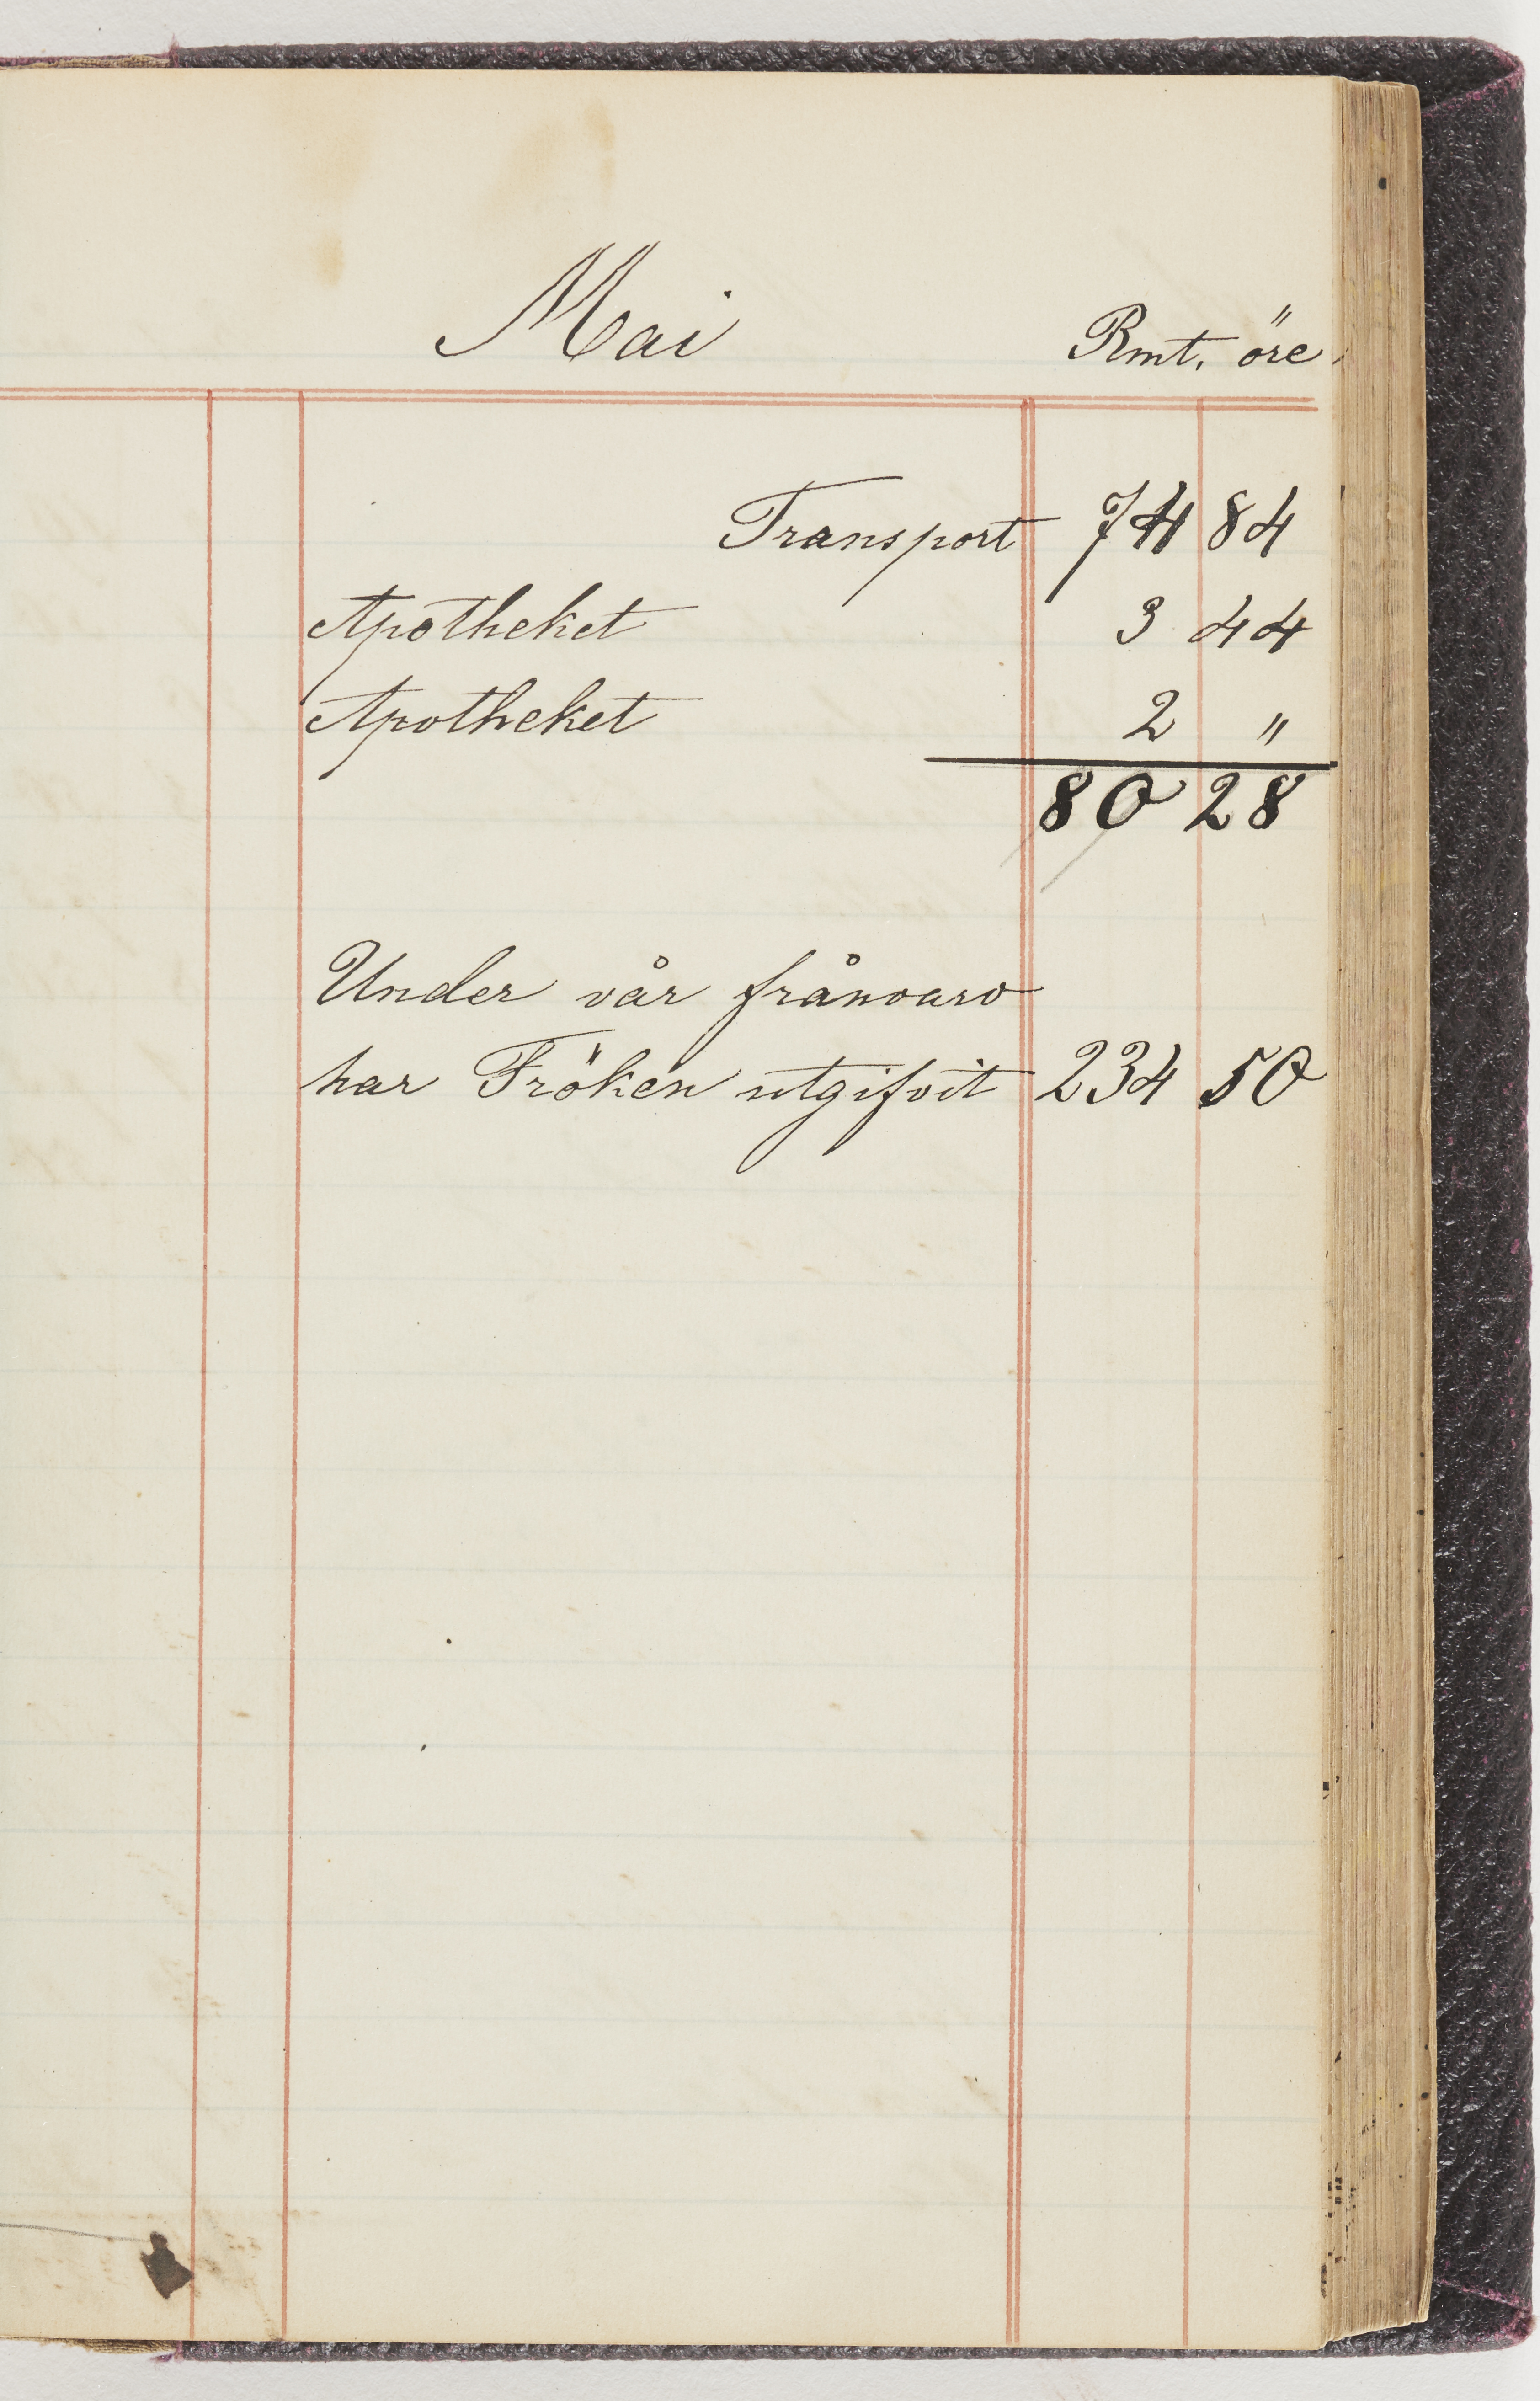 Mai Rmt. öre
Transport 74 84
Apotheket 3 44
Apotheket 2 "
80 28
Under vår frånvaro
har Fröken utgifvit 234 50